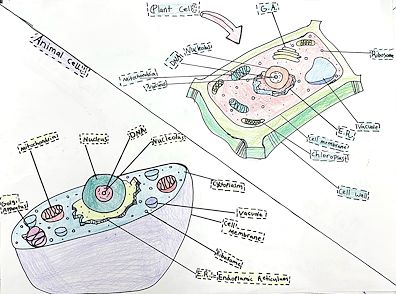 Plant Cell
G.A
Animal Cell
Nucleolus
DNA
Ribosome
mitochondrial
Vacuole
E.R.
Cell membrane
chloroplast
Cell Wall
mitochondria
Nucleus
DNA
Nucleolus
Cytoplasm
Vacuole
Cell
Membrane
Golgi
Ribosome
E.R = Endoplasmic Reticulum